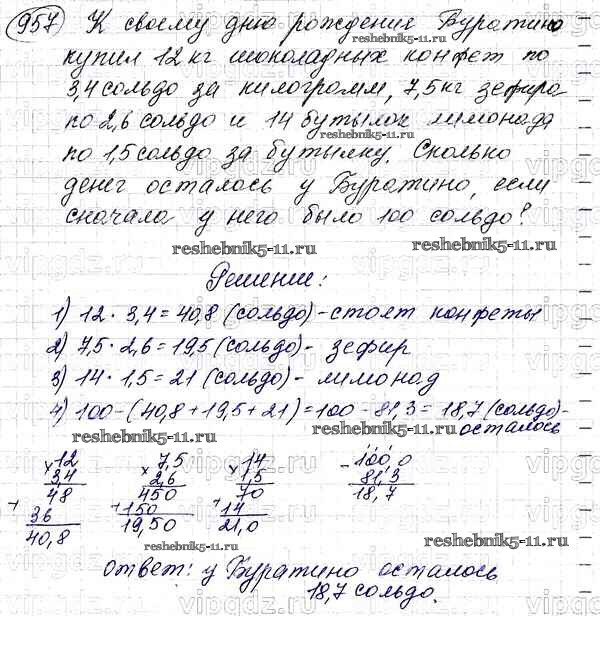 957 К своему дню рождения Буратино
reshebnik5-11.ru
купил 12 кг шоколадных конфет по
3,4 сольдо за килограмм, 7,5 кг зефира
по 2,6 сольдо и 14 бутылок лимонада
reshebnik5-11.ru
по 1,5 сольдо за бутылку. Сколько
денег осталось у Буратино, если
сначала у него было 100 сольдо?
reshebnik5-11.ru
Решение:
1) 12 · 3,4 = 40,8 (сольдо) - стоят конфеты
2) 7,5 · 2,6 = 19,5 (сольдо) - зефир
3) 14 · 1,5 = 21 (сольдо) - лимонад
4) 100 - (40,8 + 19,5 + 21) = 100 - 81,3 = 18,7 (сольдо) -
осталось
reshebnik5-11.ru reshebnik5-11.ru
12 7,5 14 100,0
× 3,4 × 2,6 × 1,5 - 81,3
48 450 70 18,7
+ 36 + 150 + 14
40,8 19,50 21,0
reshebnik5-11.ru
Ответ: у Буратино осталось
18,7 сольдо.
reshebnik5-11.ru
vipgdz.ru